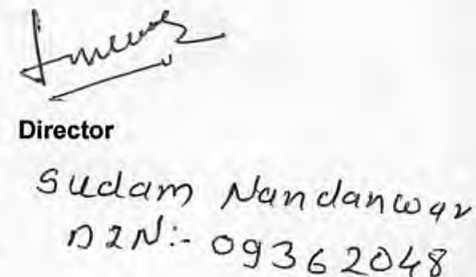 Director
Sudam Nandanwar
DIN:- 09362048